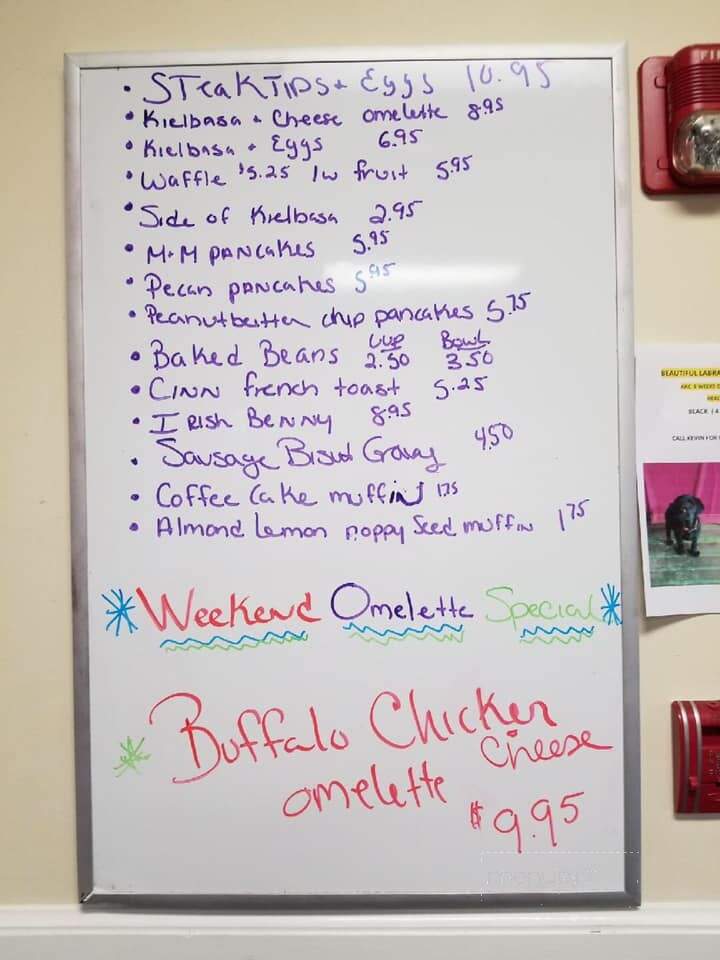 • STeak TIPS + Eggs 10.95
• Kielbasa + Cheese omelette 8.95
• Kielbasa + Eggs 6.95
• Waffle $5.25 /w fruit 5.95
• Side of Kielbasa 2.95
• M+M PANCAKES 5.95
• Pecan PANCAKES 5.95
• Peanutbutter chip pancakes 5.75
Cup Bowl
• Baked Beans 2.50 3.50
• CINN french toast 5.25
• IRISH BENNY 8.95
• Sausage Biscut Gravy 4.50
• Coffee Cake muffin 1.75
• Almond Lemon poppy Seed muffin 1.75
Weekend Omelette Special
Buffalo Chicken
Cheese
omelette
$9.95
FIR
BEAUTIFUL LABRA
BLACK (4
CALL KEVIN FOR